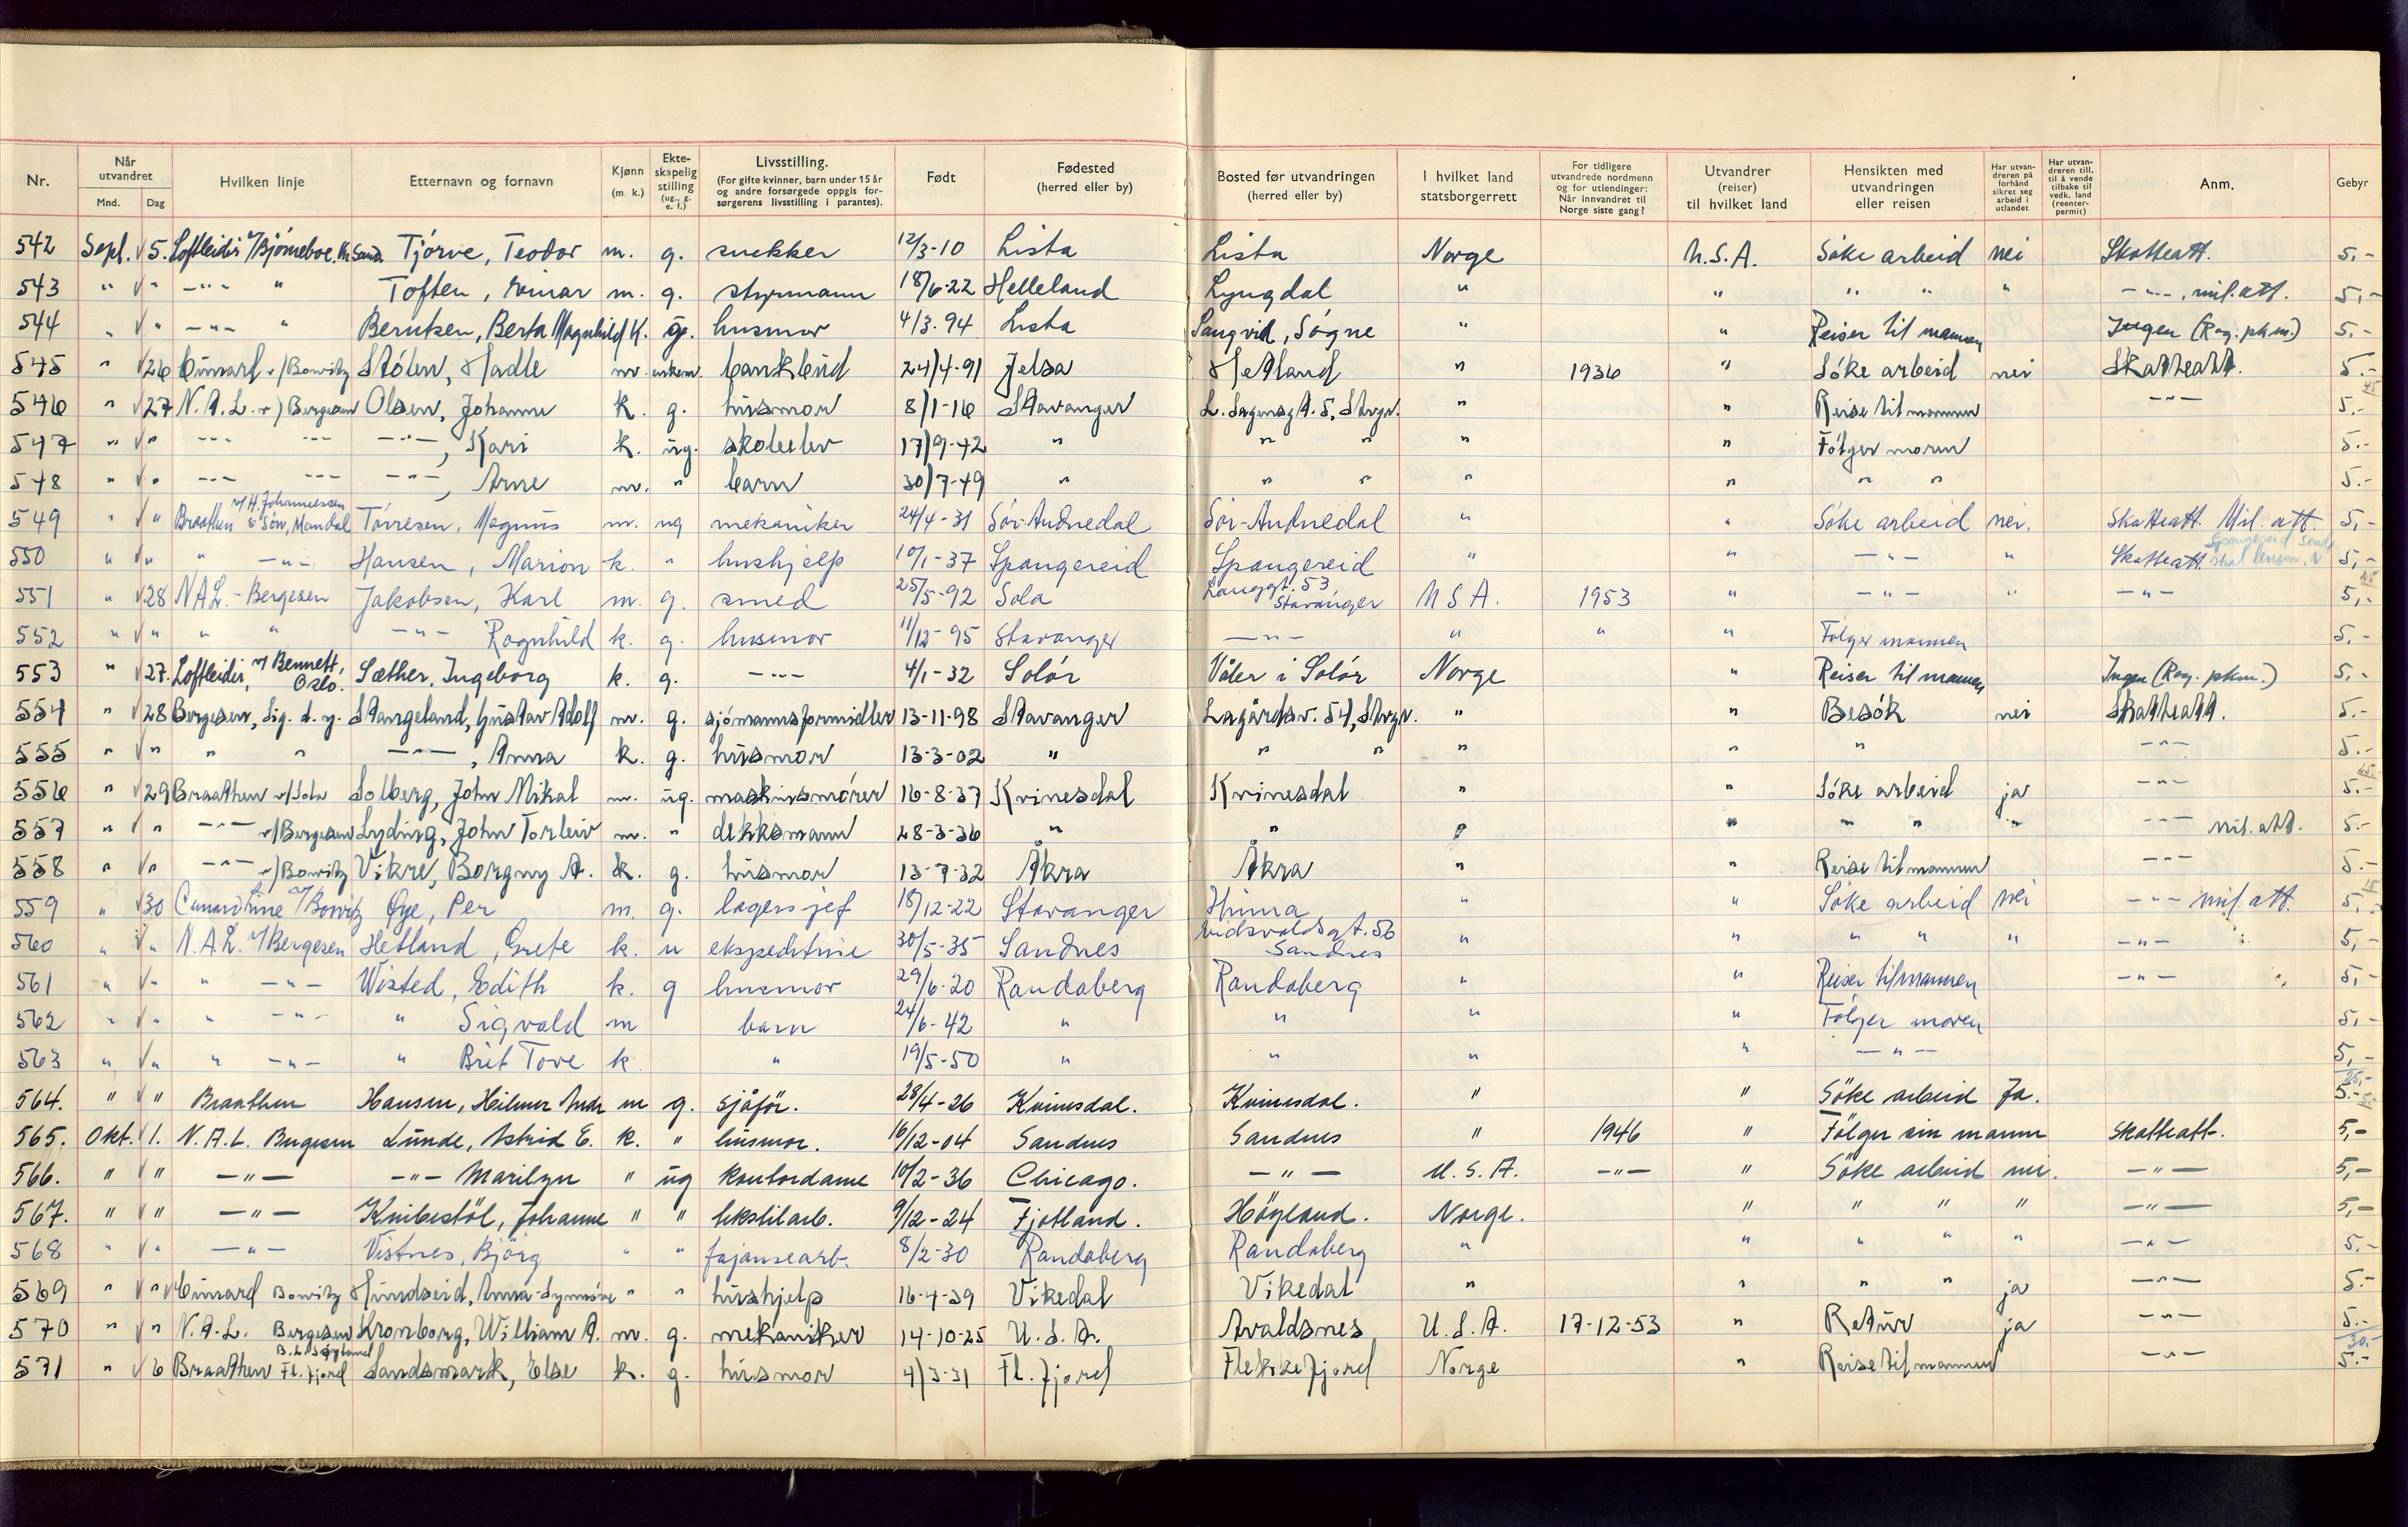 Nr. Når utvandret Mnd. Dag Hvilken linje Etternavn og fornavn Kjønn (m. k.) Ekteskapelig stilling (ug., g. e. f.) Livsstilling. (For gifte kvinner, barn under 15 år og andre forsørgede oppgis forsørgerens livsstilling i parantes). Født Fødested (herred eller by) Bosted før utvandringen (herred eller by) I hvilket land statsborgerrett For tidligere utvandrede nordmenn og for utlendinger: Når innvandret til Norge siste gang? Utvandrer (reiser) til hvilket land Hensikten med utvandringen eller reisen Har utvandreren på forhånd sikret seg arbeid i utlandet Har utvandreren till. til å vende tilbake til vedk. land (reenterpermit) Anm. Gebyr
542 Sept. √ 5. Loftleidir v/Bjørneboe. Kr.Sand. Tjørve, Teodor m. g. snekker 12/3-10 Lista Lista Norge U.S.A. Søke arbeid nei Skatteatt. 5,-
543 " √ " -"- " Toften, Einar m. g. styrmann 18/6-22 Helleland Lyngdal " " " " " -"-, mil. att. 5,-
544 " √ " -"- " Berntsen, Berta Magnhild K. g. husmor 4/3-94 Lista Langvid, Søgne " " Reiser til mannen Ingen (Rog. pkm.) 5.-
545 " √ 26 Cunard v/Bowitz Stølen, Hadle m. enkem. bankbud 24/4-91 Jelsa Hetland " 1936 " Søke arbeid nei Skatteatt. 5.-
546 " √ 27 N.A.L. v/Bergesen Olsen, Johanne k. g. husmor 8/1-16 Stavanger L. Sagensgt. 5, Stvgr. " " Reise til mannen -"- 5.-
547 " √ " -"- -"- -"-, Kari k. ug. skoleelev 17/9-42 " " " " " Følger moren 5.-
548 " √ " -"- -"- -"-, Arne m. " barn 30/7-49 " " " " " " " 5.-
549 " √ " Braathen v/H. Johannessen & Søn, Mandal Tørresen, Magnus m. ug mekaniker 24/4-31 Sør-Audnedal Sør-Audnedal " " Søke arbeid nei. Skatteatt. Mil. att. 5,-
550 " √ " " -"- Hansen, Marion k. " hushjelp 10/1-37 Spangereid Spangereid " " -"- " Skatteatt. 5,-
551 " √ 28 NAL.- Bergesen Jakobsen, Karl m. g. smed 25/5-92 Sola Langgt. 53 Stavanger USA. 1953 " -"- " -"- 5,-
552 " √ " " " -"- Ragnhild k. g. husmor 11/12-95 Stavanger -"- " " " Følger mannen 5.-
553 " √ 27. Loftleidir, v/Bennett, Oslo. Sæther, Ingeborg k. g. -"- 4/1-32 Solør Våler i Solør Norge " Reiser til mannen Ingen (Rog. pkm.) 5,-
554 " √ 28 Bergesen, Sig. d. y. Stangeland, Gustav Adolf m. g. sjømannsformidler 13-11-98 Stavanger Lagårdsv. 54, Stvgr. " " Besøk nei Skatteatt. 5.-
555 " √ " " " -"-, Anna k. g. husmor 13-3-02 " " " " " " -"- 5.-
556 " √ 29 Braathen v/Sola Solberg, John Mikal m. ug. maskinsmører 16-8-37 Kvinesdal Kvinesdal " " Søke arbeid ja -"- 5.-
557 " √ " -"- v/Bergesen Lyding, John Torleiv m. " dekksmann 28-3-36 " " " " " " " -"- mil. att. 5.-
558 " √ " -"- v/Bowitz Vikre, Borgny A. k. g. husmor 13-7-32 Åkra Åkra " " Reise til mannen -"- 5.-
559 " √ 30 Cunard Line v/Bowitz Øye, Per m. g. lagersjef 18/12-22 Stavanger Hinna " " Søke arbeid nei -"- mil. att. 5,-
560 " √ " N.A.L. v/Bergesen Hetland, Grete k. u ekspeditrise 30/5-35 Sandnes Eidsvoldsgt. 56 Sandnes " " " " " -"- 5,-
561 " √ " " -"- Wisted, Edith k. g husmor 29/6-20 Randaberg Randaberg " " Reiser til mannen -"- 5,-
562 " √ " " -"- " Sigvald m barn 24/6-42 " " " " Følger moren 5,-
563 " √ " " -"- " Brit Tove k. " 19/5-50 " " " " -"- 5,-
564. " √ " Braathen Hansen, Hilmer Andr m g. sjåfør. 28/4-26 Kvinesdal. Kvinesdal. " " Søke arbeid Ja. 5.-
565. Okt. √ 1. N.A.L. Bergesen Lunde, Astrid E. k. " husmor. 16/12-04 Sandnes Sandnes " 1946 " Følger sin mann Skatteatt. 5,-
566. " √ " -"- -"- Marilyn " ug kontordame 10/2-36 Chicago. -"- U.S.A. -"- " Søke arbeid nei. -"- 5,-
567. " √ " -"- Knibestøl, Johanne " " tekstilarb. 9/12-24 Fjotland. Høyland. Norge. " " " " -"- 5,-
568 " √ " -"- Vistnes, Bjørg " " fajansearb. 8/2-30 Randaberg Randaberg " " " " " -"- 5.-
569 " √ " Cunard Bowitz Hundseid, Anna-Synnøve " " hushjelp 16-4-39 Vikedal Vikedal " " " " ja -"- 5.-
570 " √ " N.A.L. Bergesen Kronborg, William A. m. g. mekaniker 14-10-25 U.S.A. Avaldsnes U.S.A. 17-12-53 " Retur ja -"- 5.-
571 " √ 6 Braathen Fl. fjord Sandsmark, Else k. g. husmor 4/3-31 Fl. fjord Flekkefjord Norge " Reise til mannen -"- 5.-